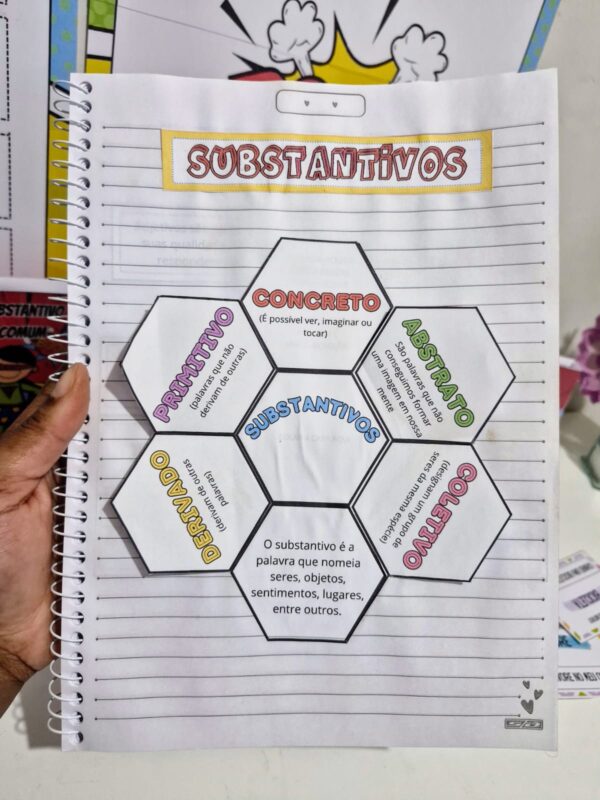 SUBSTANTIVOS
CONCRETO
(É possível ver, imaginar ou
tocar)
PRIMITIVO
(palavras que não
derivam de outras)
ABSTRATO
São palavras que não
conseguimos formar
uma imagem em nossa
mente
SUBSTANTIVOS
DERIVADO
(derivam de outras
palavras)
COLETIVO
(designam um grupo de
seres da mesma espécie)
O substantivo é a
palavra que nomeia
seres, objetos,
sentimentos, lugares,
entre outros.
COMUM